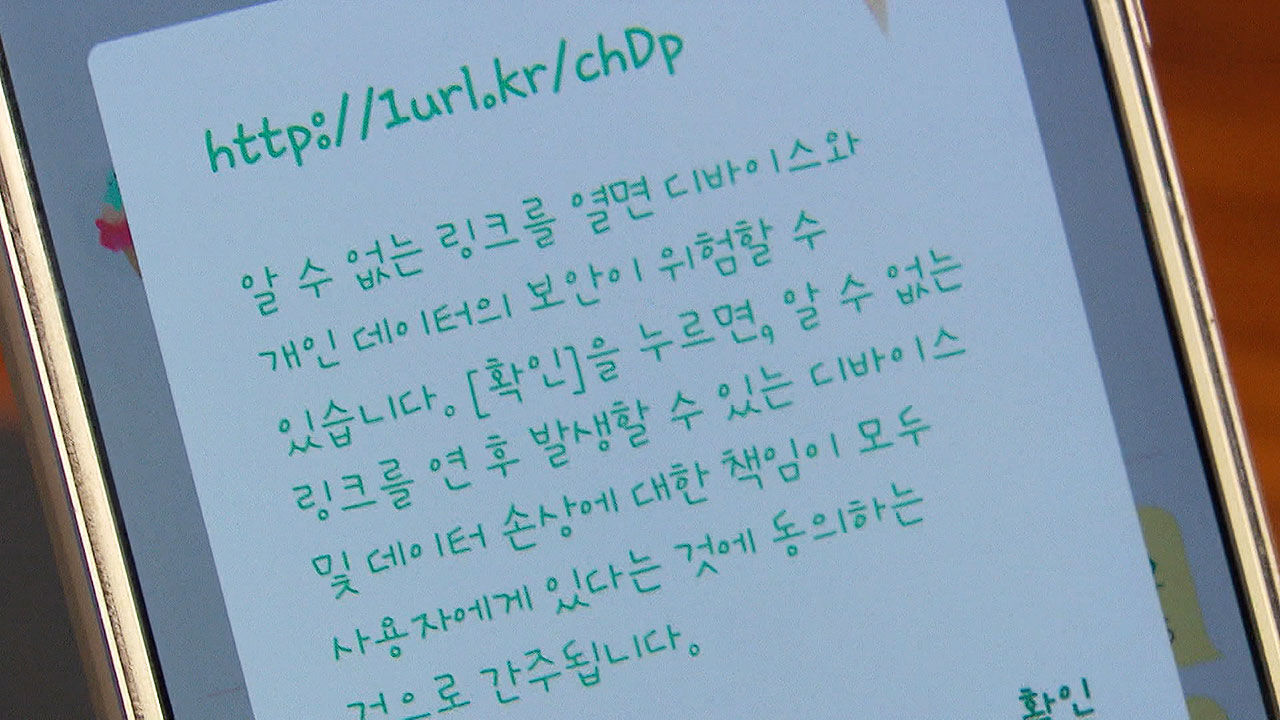 http://1url.kr/chDp
알 수 없는 링크를 열면 디바이스와
개인 데이터의 보안이 위험할 수
있습니다. [확인]을 누르면, 알 수 없는
링크를 연 후 발생할 수 있는 디바이스
및 데이터 손상에 대한 책임이 모두
사용자에게 있다는 것에 동의하는
것으로 간주됩니다.
확인